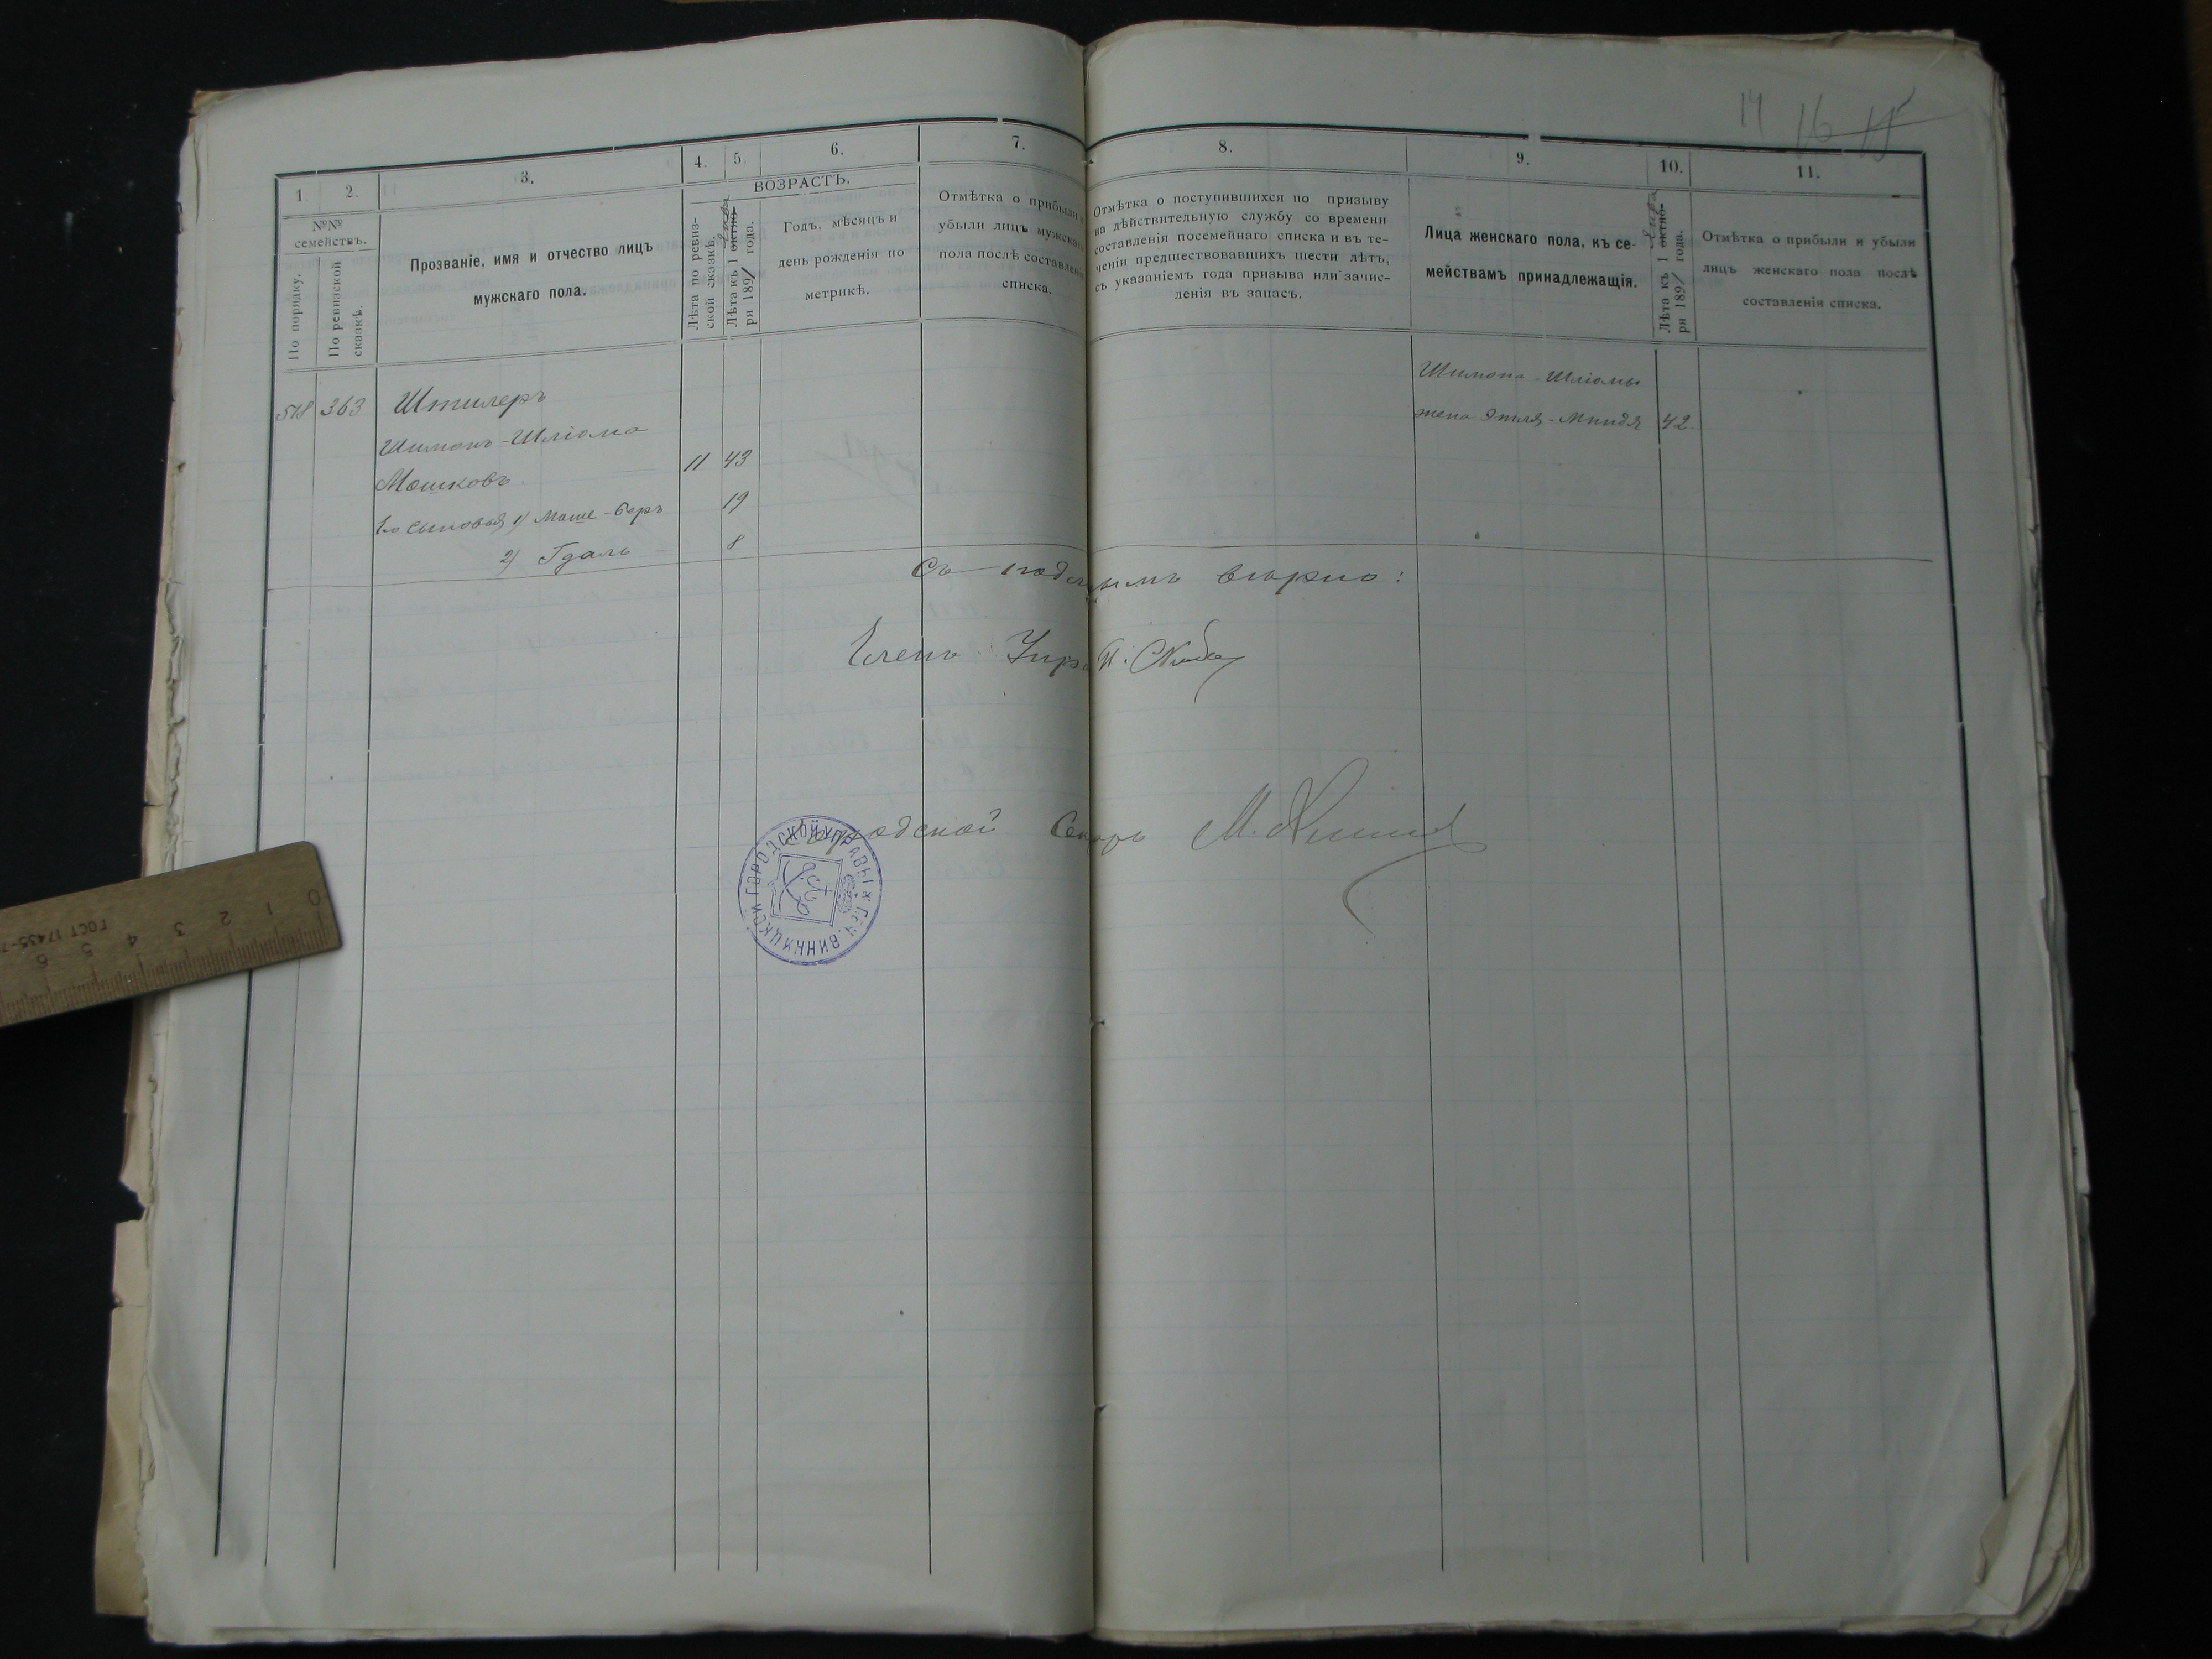 14 16 15
1.
2.
3.
4.
5.
6.
7.
8.
9.
10.
11.
№№ семействъ.
По порядку.
По ревизской сказкѣ.
Прозваніе, имя и отчество лицъ
мужскаго пола.
ВОЗРАСТЪ.
Лѣта по ревиз-
ской сказкѣ.
Лѣта къ 1 октяб-
ря 1891 года.
Годъ, мѣсяцъ и
день рожденія по
метрикѣ.
Отмѣтка о прибыли и
убыли лицъ мужскаго
пола послѣ составленія
списка.
Отмѣтка о поступившихся по призыву
на дѣйствительную службу со времени
составленія посемейнаго списка и въ те-
ченіи предшествовавшихъ шести лѣтъ,
съ указаніемъ года призыва или зачис-
ленія въ запасъ.
Лица женскаго пола, къ се-
мействамъ принадлежащія.
Лѣта къ 1 октяб-
ря 1891 года.
Отмѣтка о прибыли и убыли
лицъ женскаго пола послѣ
составленія списка.
518 363 Штилеръ
Шимонъ-Шліома
Мошковъ 11 43
Его сыновья 1) Моше-Беръ 19
2) Гдаль 8
Шимона-Шліомы
жена Этля-Миндя 42
Съ подлиннымъ вѣрно:
Членъ Упр.
Городской Секрѣ М.
ВИННИЦКОЙ ГОРОДСКОЙ УПРАВЫ
ГОСТ 17435-7
0 1 2 3 4 5 6